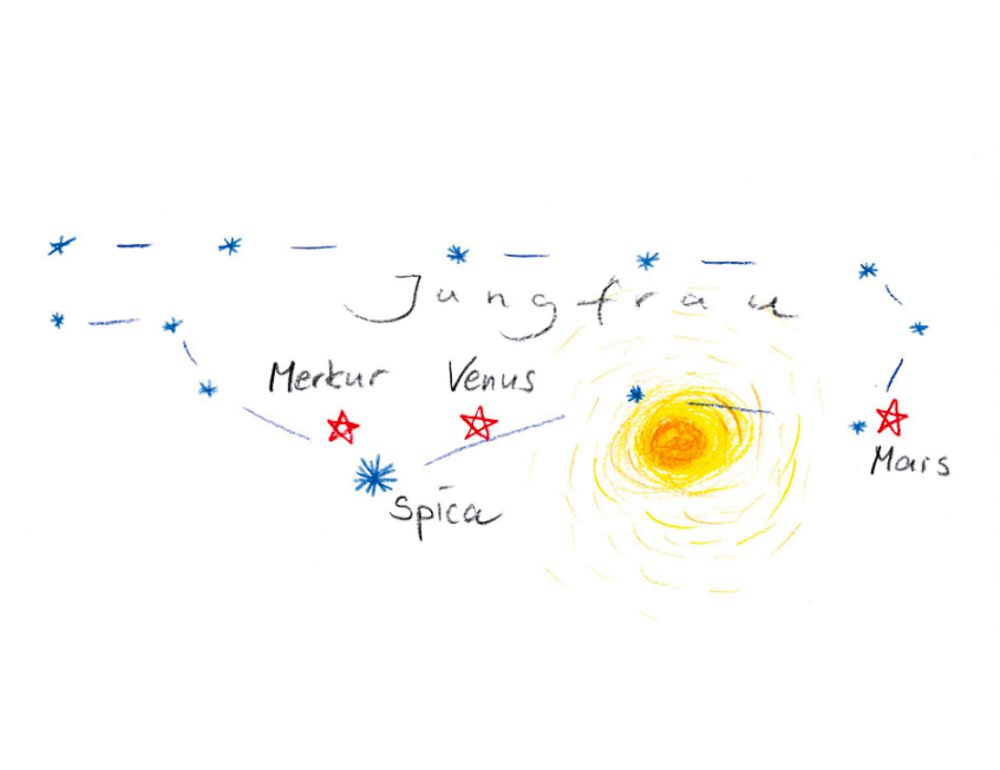 Jungfrau
Merkur Venus
Mars
Spica